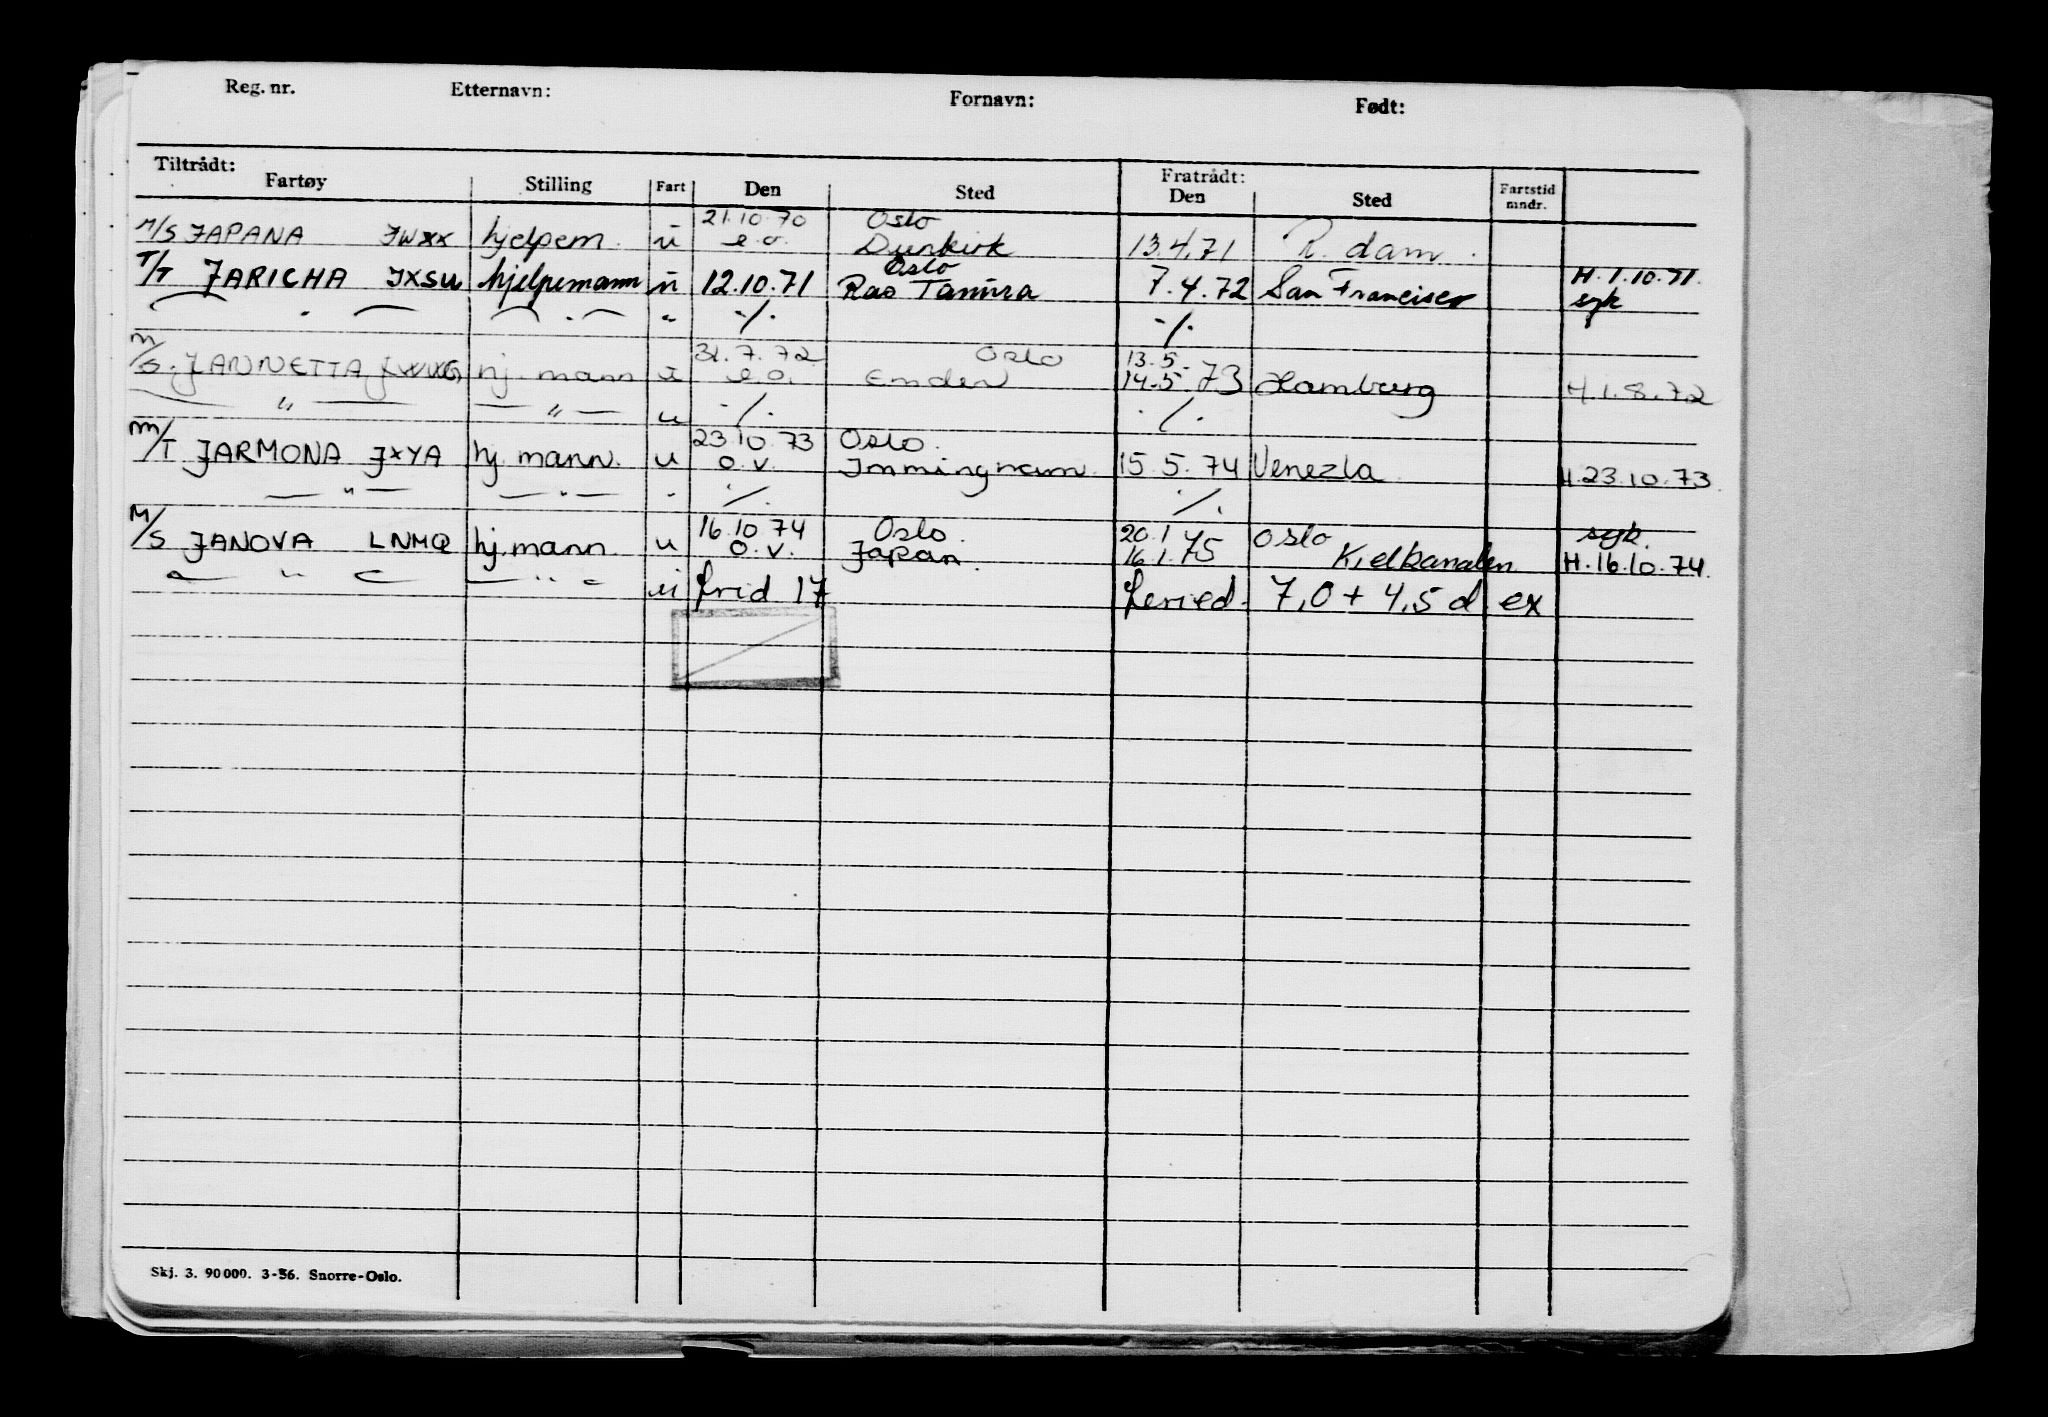 Reg. nr. Etternavn: Fornavn: Født:
Tiltrådt: Fratrådt:
Fartøy Stilling Fart Den Sted Den Sted Fartstid mndr.
21.10.70 Oslo
M/S JAPANA JWXX hjelpem. ü e.o. Dunkirk 13.4.71 R.dam.
Oslo H.1.10.71.
T/T JARICHA JXSU hjelpemann ü 12.10.71 Ras Tanura 7.4.72 San Francisco syk
" " " -/. -/.
31.7.72 Oslo 13.5.
M/S. JANNETTA hj. mann u e.o. Emden 14.5.73 Hamburg H.1.8.72
— " — — " — u -/. -/.
23.10.73 Oslo.
M/T JARMONA JXYA hj. mann. u o.v. Immingham. 15.5.74 Venezla H.23.10.73.
— " — — " — - -/. -/.
16.10.74 Oslo. 20.1 Oslo syk.
M/S JANOVA LNMQ hj. mann. u o.v. Japan. 16.1.75 Kielkanalen H.16.10.74.
— " — — " — ü frid 17 feried. 7,0 + 4,5 d. ex
Skj. 3. 90 000. 3-56. Snorre-Oslo.